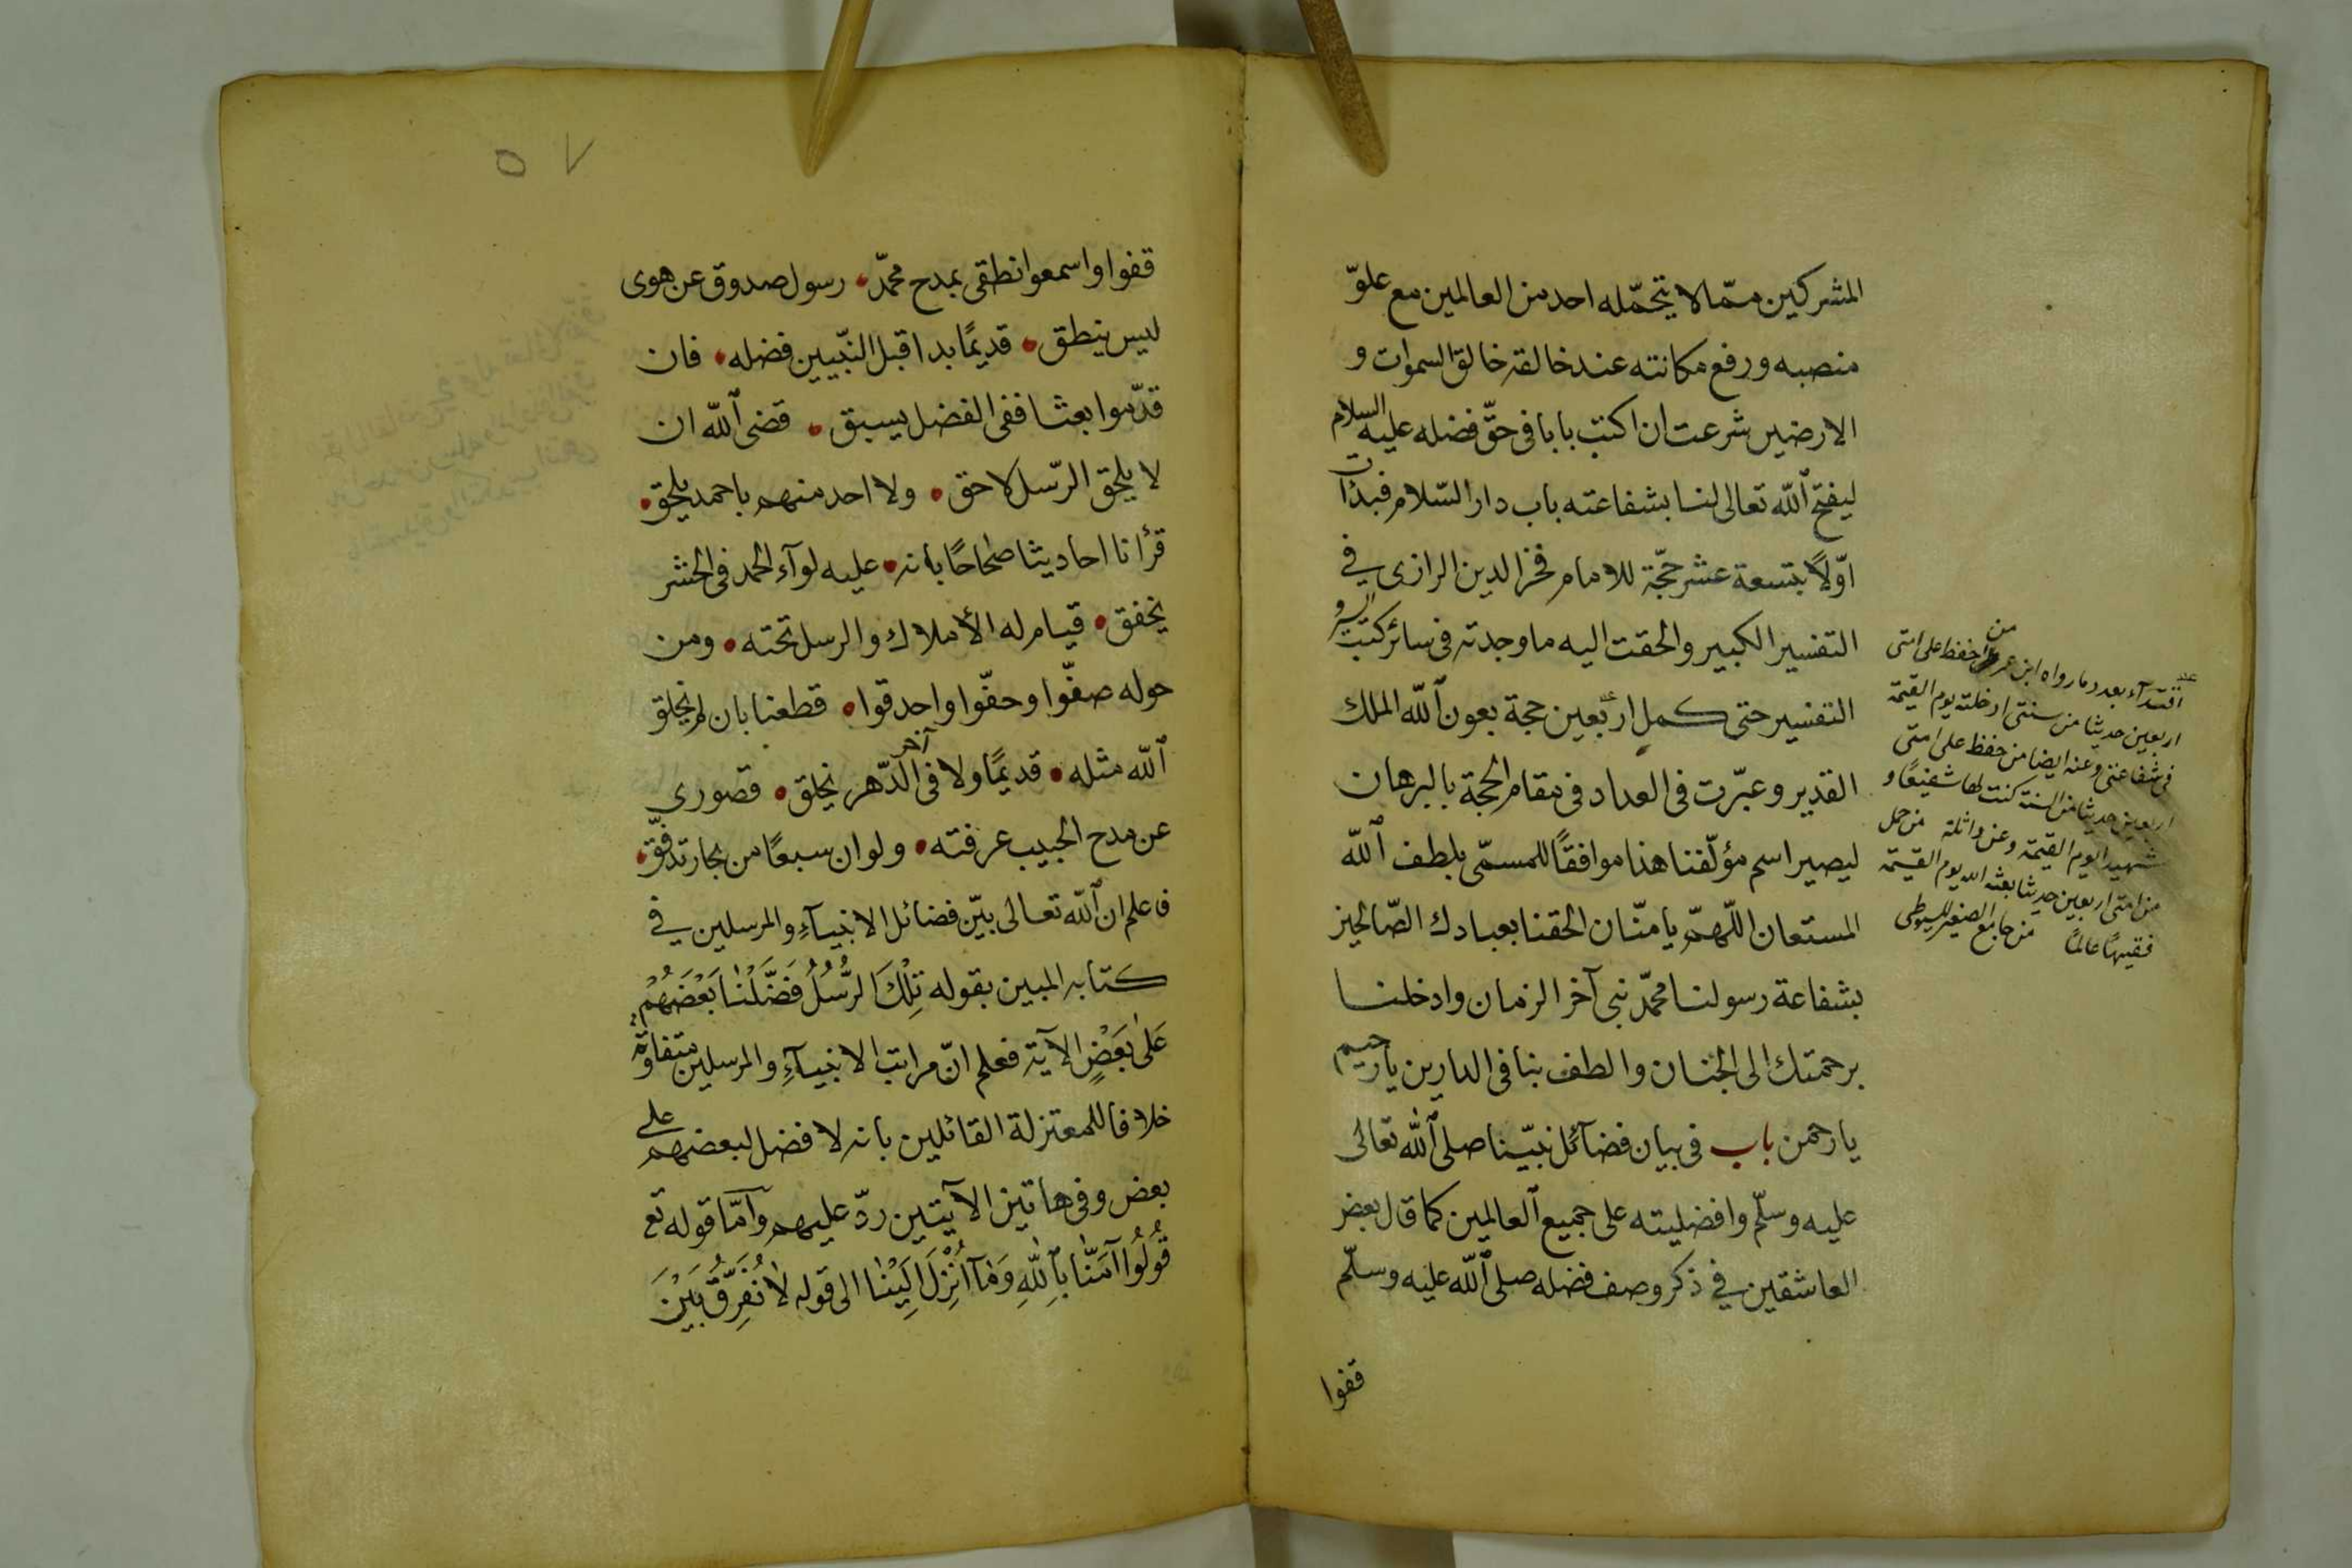 المشركين ممّا لا يتحمّله احد من العالمين مع علوّ
منصبه ورفع مكانته عند خالقه خالق السموات و
الارضين شرعت ان اكتب بابا فى حقّ فضله عليه السلام
ليفتح الله تعالى لنا بشفاعته باب دار السّلام فبدأت
اوّلاً بتسعة عشر حجّة للامام فخر الدين الرازى فى
التفسير الكبير والحقت اليه ما وجدته فى سائر كتب
التفسير حتى كمل اربعين حجة بعون الله الملك
القدير وعبّرت فى العداد فى مقام الحجة بالبرهان
ليصير اسم مؤلّفنا هذا موافقًا للمسمّى بلطف الله
المستعان اللّهمّ يا منّان الحقنا بعبادك الصّالحين
بشفاعة رسولنا محمّد نبى آخر الزمان وادخلنا
برحمتك الى الجنان والطف بنا فى الدارين يا رحيم
يا رحمن باب فى بيان فضآئل نبيّنا صلى الله تعالى
عليه وسلّم وافضليته على جميع العالمين كما قال بعض
العاشقين فى ذكر وصف فضله صلى الله عليه وسلّم
قفوا
اقتدآء بعدد ما رواه ابن عمر من حفظ على امتى
اربعين حديثا من سنتى ادخلته يوم القيمة
فى شفاعتى وعنه ايضا من حفظ على امتى
اربعين حديثا من السنة كنت لها شفيعًا و
شهيدا يوم القيمة وعن واثلة من حمل
من امتى اربعين حديثا بعثه الله يوم القيمة
فقيهًا عالمًا من جامع الصغير للسيوطى
٥٧
قفوا واسمعوا نطقى بمدح محمّد رسول صدوق عن هوى
ليس ينطق قديمًا بدا قبل النبّيين فضله فان
قدّموا بعثا ففى الفضل يسبق قضى الله ان
لا يلحق الرّسل لاحق ولا احد منهم باحمد يلحق
قرأنا احاديثا صحاحًا بانه عليه لوآء الحمد فى الحشر
يخفق قيام له الأملاك والرسل تحته ومن
حوله صفّوا وحفّوا واحدقوا قطعنا بان لم يخلق
الله مثله قديمًا ولا فى آخر الدّهر يخلق قصورى
عن مدح الحبيب عرفته ولو ان سبعًا من بحار تدفّق
فاعلم ان الله تعالى بيّن فضائل الانبيآءِ والمرسلين فى
كتابه المبين بقوله تِلْكَ الرُّسُلُ فَضَّلْنٰا بَعْضَهُمْ
عَلىٰ بَعْضٍ الآية فعلم انّ مراتب الانبيآءِ والمرسلين متفاوتة
خلافا للمعتزلة القائلين بانه لا فضل لبعضهم على
بعض وفى هاتين الآيتين ردّ عليهم وامّا قوله تع
قُولُوا آمَنّٰا بِاللّٰهِ وَمٰآ اُنْزِلَ اِلَيْنٰا الى قوله لٰا نُفَرِّقُ بَيْنَ